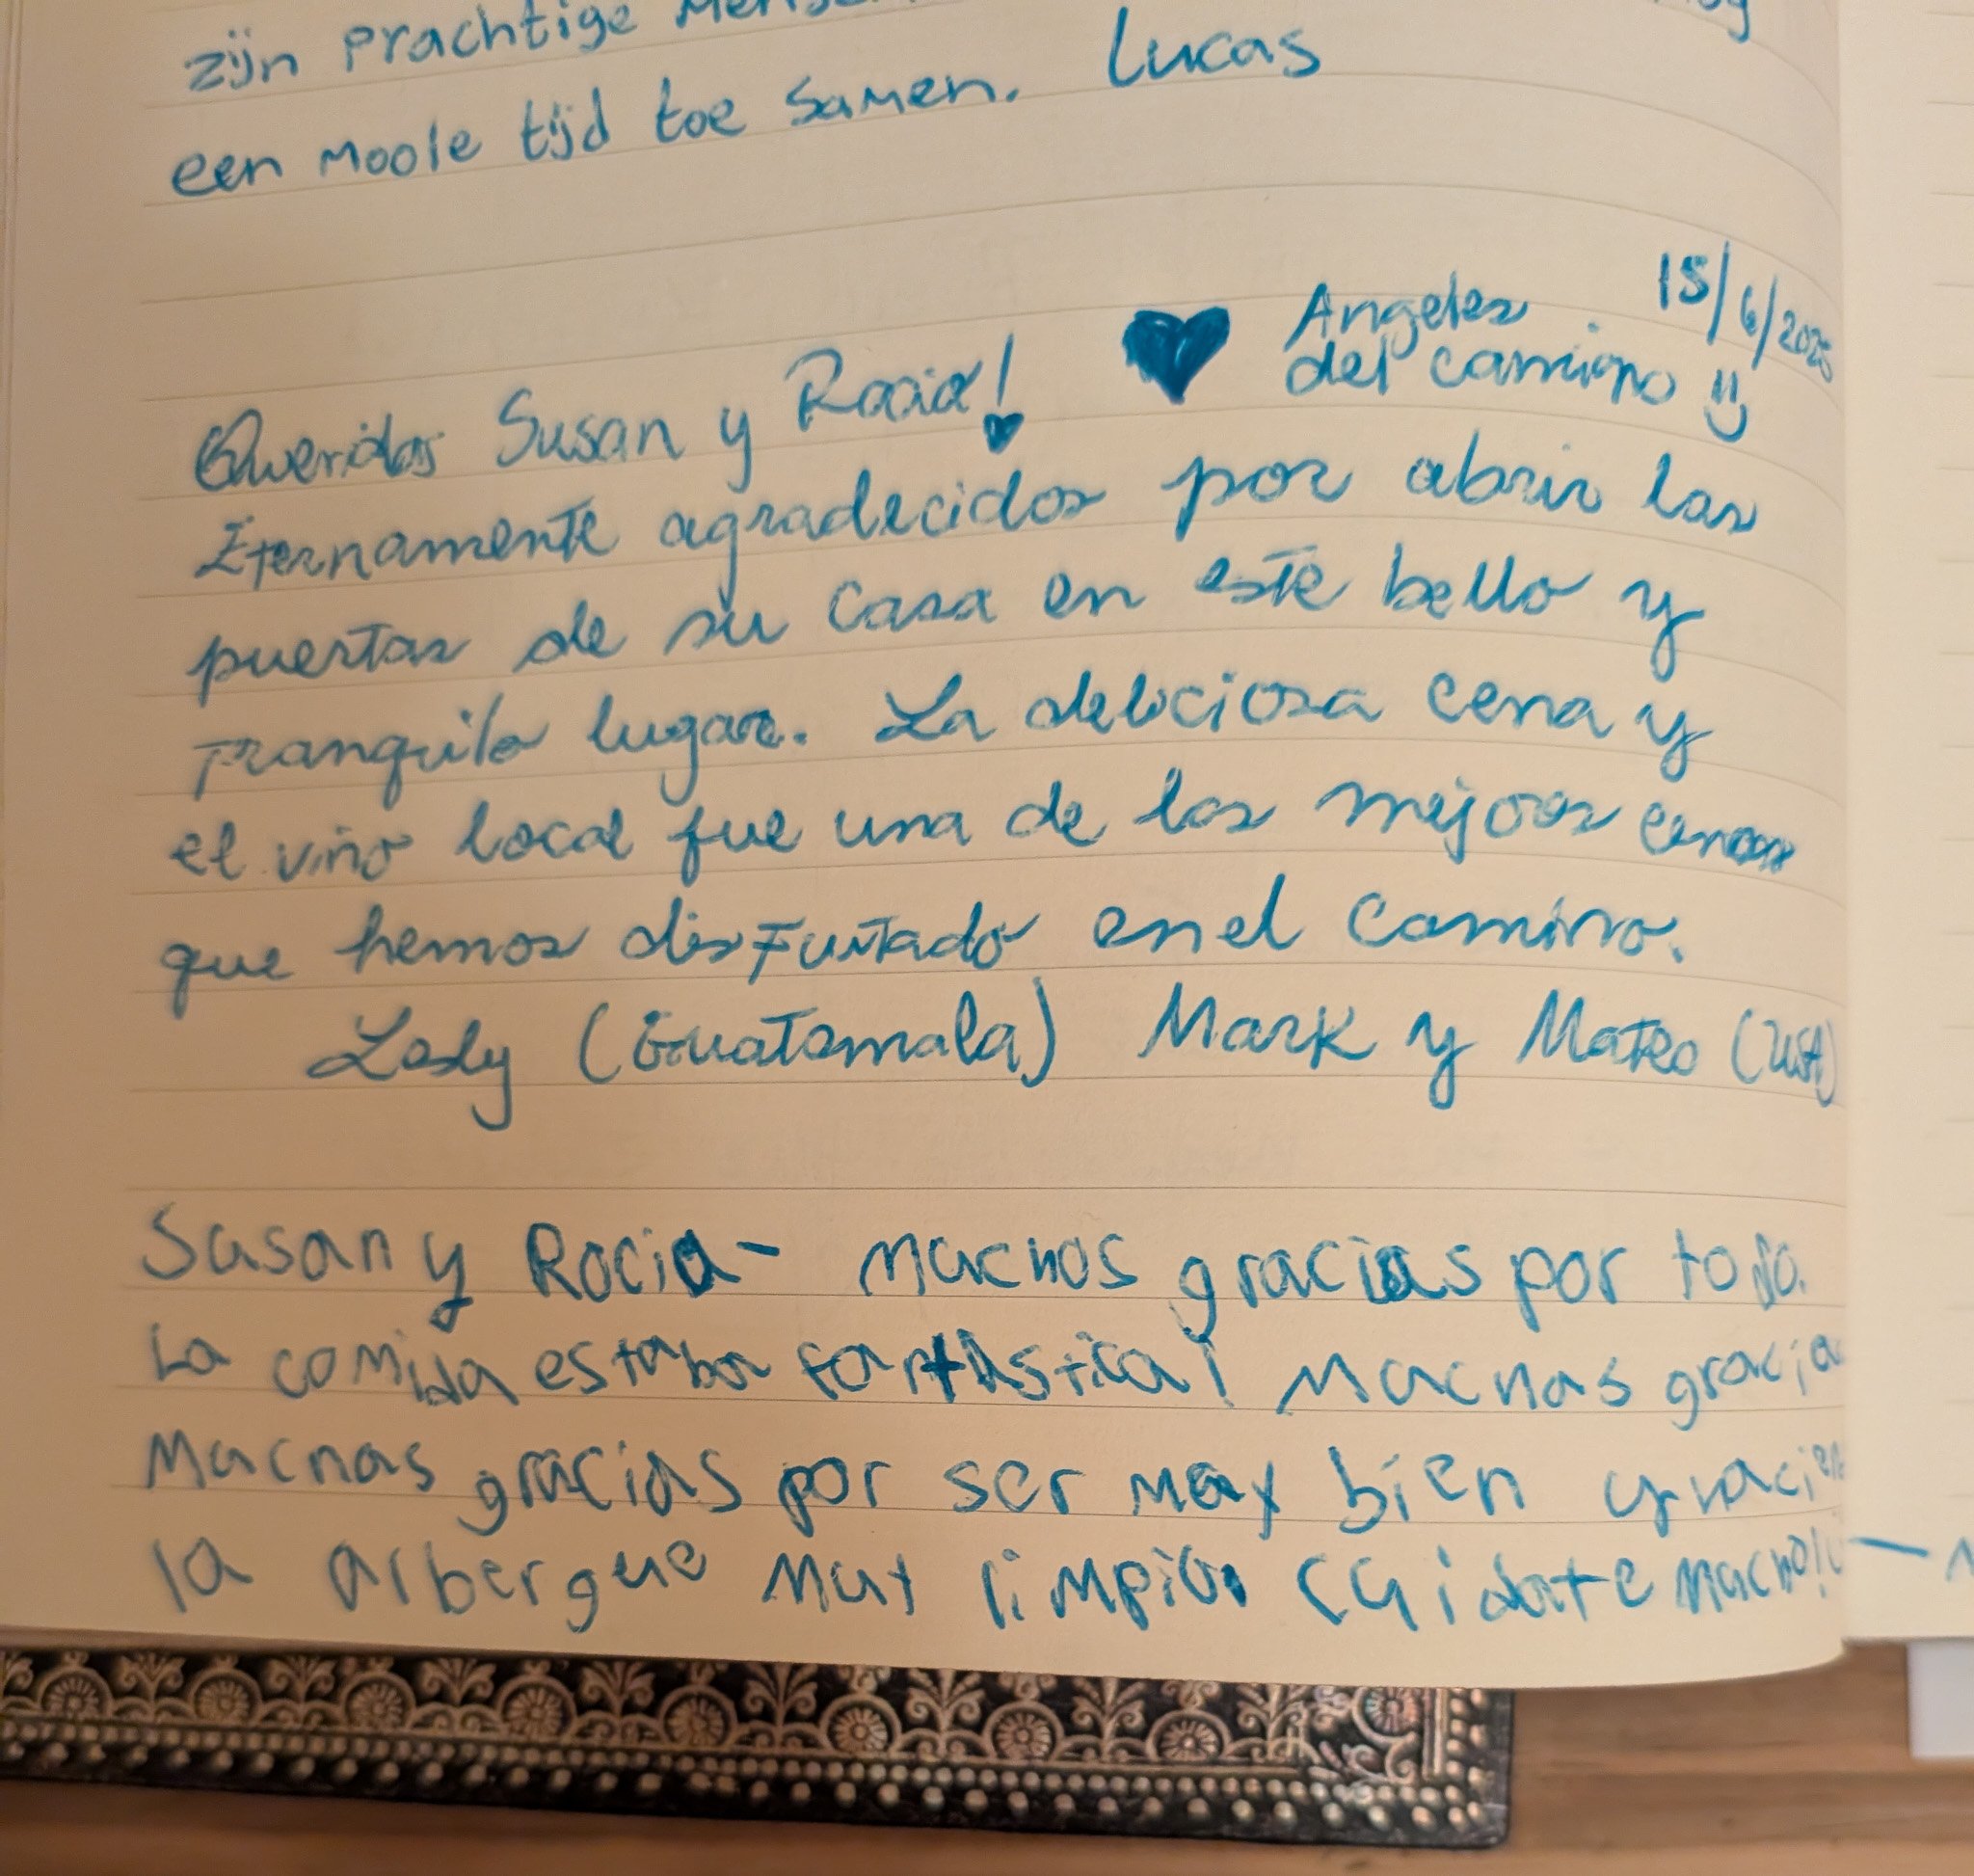 zijn prachtige
een mooie tijd toe samen. Lucas
15/6/2025
♥ Angeles
del camino
Queridas Susan y Rocio!
Eternamente agradecidos por abrir las
puertas de su casa en este bello y
tranquilo lugar. La deliciosa cena y
el vino local fue una de las mejores cenas
que hemos disfurtado en el camino.
Lesly (Guatemala) Mark y Mateo (USA)
Susan y Rocia - muchos gracias por todo.
La comida estaba fantástica! Muchas gracias
Muchas gracias por ser muy bien y
la albergue muy limpio. Cuidate mucho!